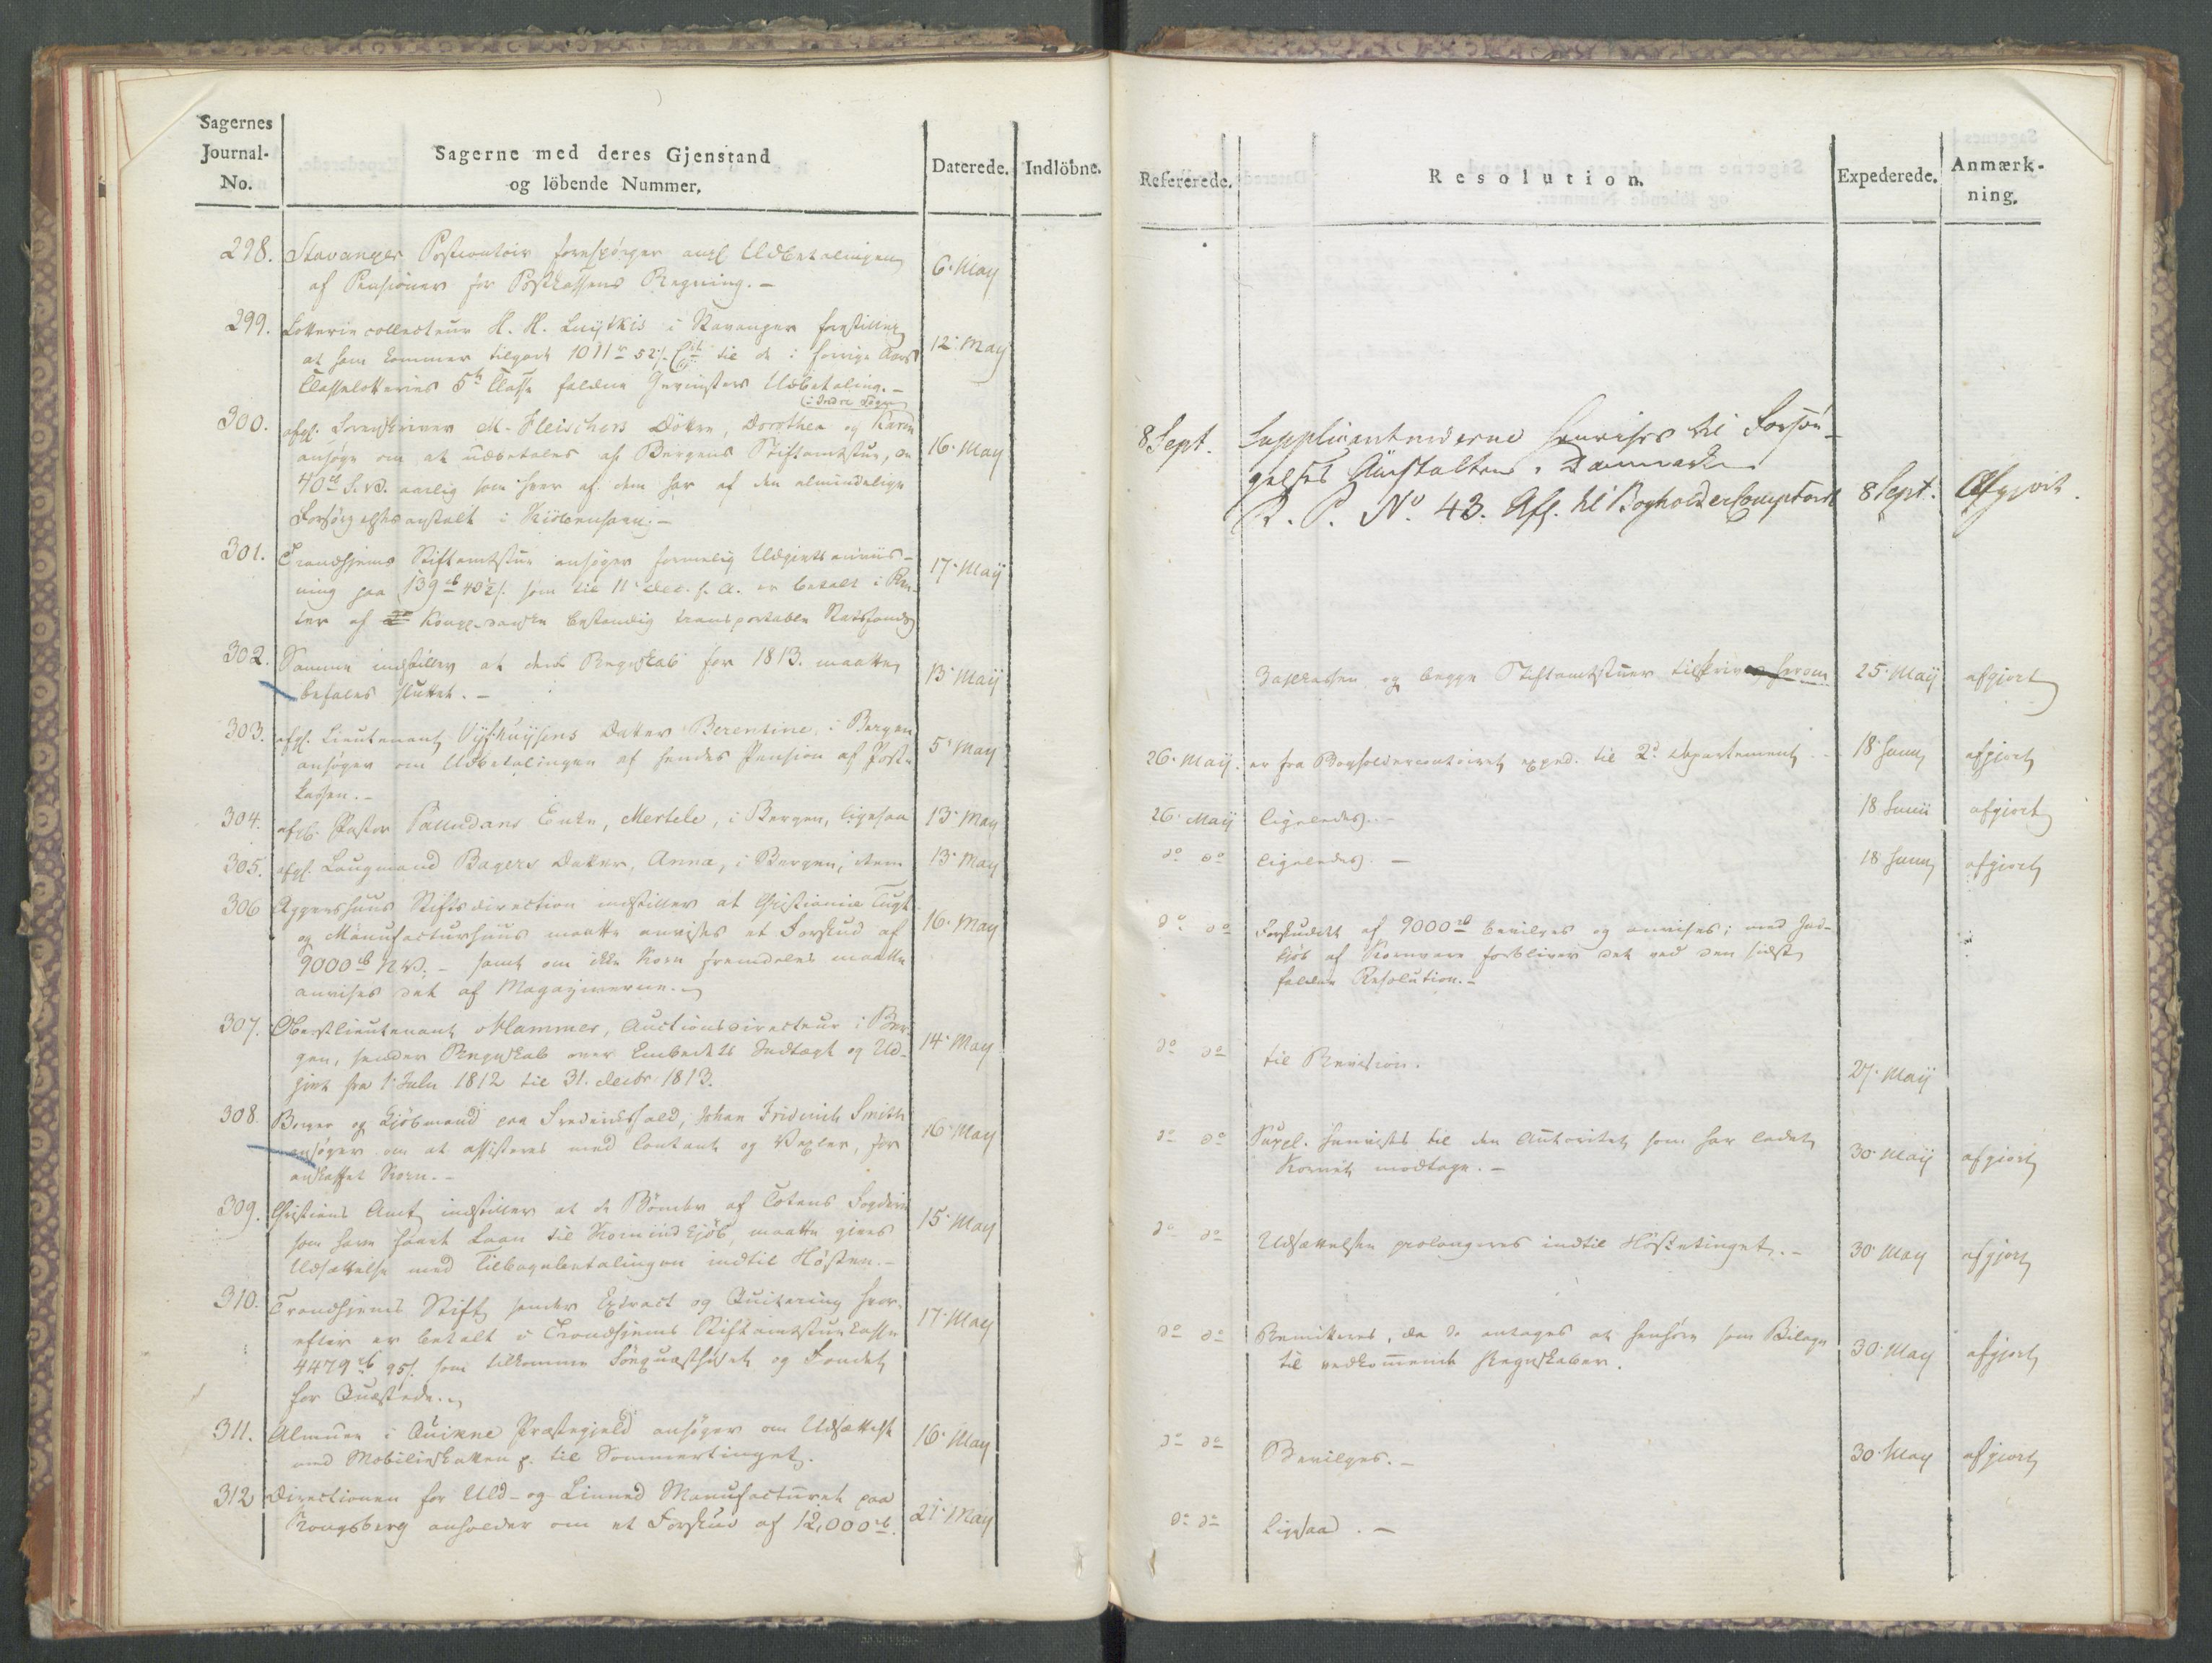 Sagernes
Journal-
No.
Sagerne med deres Gjenstand
og löbende Nummer.
Daterede.
Indlöbne.
298. Stavanger Postcontoir forespörger angl Udbetalingen
af Pensioner for Postkassens Regning. - 6. May
299. Lotteriecollecteur i Stavanger forestiller
at ham kommer tilgode 1011 52 til de i forrige Aars
Classelotteries 5te Classe faldne Gevinsters Udbetaling. - 12. May
300. afgl. Sorenskriver M. Fleischers Döttre, Dorothea og Karen
ansöge om at udbetales af Bergens Stiftamtstue, de
40 S.V. aarlig som hver af dem har af den almindelige
Forsörgelsesanstalt i Kiöbenhavn. - 16. May
301. Trondhjems Stiftamtstue ansöger formelig Udgiftsanviis-
ning paa 139 43 som til 11 Dec. f. A. er betalt i Ren-
ter af Kongl. danske bestandig transportable Statsfonds 17. May
302. Samme indstiller at dens Regnskab for 1813. maatte
befales sluttet. - 13. May
303. afgl. Lieutenant Datter Berentine, i Bergen
ansöger om Udbetalingen af hendes Pension af Post-
kassen. - 5. May
304. afgl. Pastor Paludans Enke, Mertele, i Bergen, ligesaa 13. May
305. afgl. Laugmand Bagers Datter, Anna, i Bergen, item 13. May
306 Aggershuus Stiftsdirection indstiller at Christiania Tugt
og Manufacturhuus maatte anvises et Forskud af
9000 N.V. - samt om ikke Korn fremdeles maatte
anvises det af Magazinerne. 16. May
307. Oberstlieutenant Hammer, Auctionsdirecteur i Ber-
gen, sender Regnskab over Embedets Indtægt og Ud-
givt fra 1. Julii 1812 til 31. Decbr 1813. 14. May
308. Borger og Kjöbmand paa Fredrikshald, Johan Fridrich Smith
ansöger om at assisteres med Contant og Vexler, for
anskaffet Korn. - 16. May
309. Christians Amt indstiller at de Bönder af Totens Fogderie
som have faaet Laan til Kornindkjöb, maatte gives
Udsættelse med Tilbagebetalingen indtil Hösten. - 15. May
310. Trondhjems Stift sender Extract og Quitering hvor-
efter er betalt i Trondhjems Stiftamtstuekasse
4479 95 som tilkommer Söequæsthuset og Fondet
for Quæstede. 17. May
311. Almuen i Quikne Præstegjeld ansöger om Udsættelse
med Mobilieskatten p. til Sommertinget. 16. May
312 Directionen for Uld- og Linned Manufacturet paa
Kongsberg anholder om et Forskud af 12,000. 21. May
Refererede.
Resolution.
Expederede.
Anmærk-
ning.
8 Sept. Supplicantinderne henvises til Forsör-
gelses Anstalten i Danmark
R. P. No. 43. Afg. til BogholderComptoiret 8 Sept. Afgjort.
Zahlkassen og begge Stiftamtstuer tilskrives herom 25. May afgjort
26. May. er fra Bogholdercontoiret exped. til 2d Departement. - 18. Junii afgjort
26. May ligeledes. - 18 Junii afgjort
do do ligeledes. - 18 Junii afgjort
do do Forskuddet af 9000 bevilges og anvises; med Ind-
kjöb af Kornvare forbliver det ved den sidst
faldne Resolution. -
do do til Revision. 27. May
do do Suppl. henvises til den Autoritet som har ladet
Kornet modtage. - 30. May afgjort
do do Udsættelsen prolongeres indtil Höstetinget. - 30. May afgjort
do do Remitteres, da de antages at henhöre som Bilage
til vedkommende Regnskaber. 30. May afgjort
do do Bevilges. - 30. May afgjort
do do Ligesaa. -